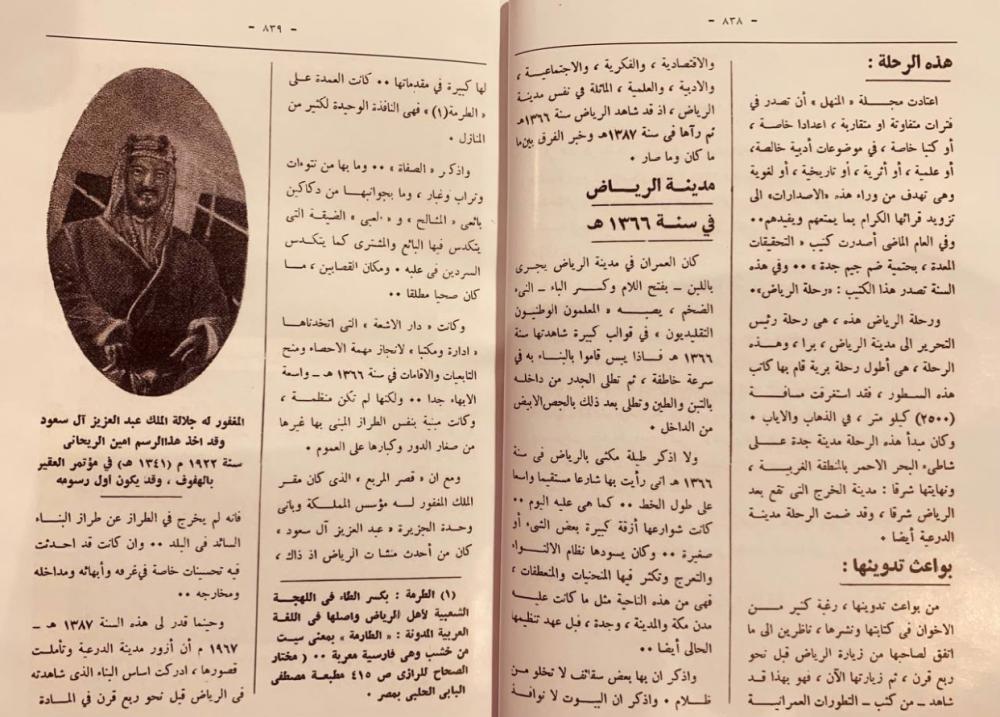 - ٨٣٨ -
هذه الرحلة :
اعتادت مجلة « المنهل » أن تصدر في
فترات متفاوتة او متقاربة ، اعدادا خاصة ،
أو كتبا خاصة ، في موضوعات أدبية خالصة،
أو علمية ، أو أثرية ، أو تاريخية ، أو لغوية
وهي تهدف من وراء هذه «الاصدارات» الى
تزويد قرائها الكرام بما يمتعهم ويفيدهم٠٠
وفي العام الماضى أصدرت كتيب « التحقيقات
المعدة ، بحتمية ضم جيم جدة » ٠٠ وفي هذه
السنة تصدر هذا الكتيب : «رحلة الرياض»٠
ورحلة الرياض هذه ، هى رحلة رئيس
التحرير الى مدينة الرياض ، برا ، وهــذه
الرحلة ، هى أطول رحلة برية قام بها كاتب
هذه السطور ، فقد استغرقت مسافــة
(٢٥٠٠) كيلو متر ، في الذهاب والاياب ٠
وكان مبدأ هذه الرحلة مدينة جدة عــلى
شاطىء البحر الاحمر بالمنطقة الغربيــة ،
ونهايتها شرقا : مدينة الخرج التى تقع بعد
الرياض شرقا ، وقد ضمت الرحلة مدينة
الدرعية أيضا ٠
بواعث تدوينها :
من بواعث تدوينها ، رغبة كثير مــن
الاخوان فى كتابتها ونشرها ، ناظرين الى ما
اتفق لصاحبها من زيارة الرياض قبل نحو
ربع قرن ، ثم زيارتها الآن ، فهو بهذا قـد
شاهد ــ من كثب ــ التطورات العمرانيـة
والاقتصادية ، والفكرية ، والاجتماعيــة ،
والادبية ، والعلمية ، الماثلة في نفس مدينـة
الرياض ، اذ قد شاهد الرياض سنة ١٣٦٦هـ
ثم رآها فى سنة ١٣٨٧هـ وخبر الفرق بين ما
ما كان وما صار ٠
مدينـة الريــاض
في سنــة ١٣٦٦ هـ
كان العمران في مدينة الرياض يجرى
باللبن ــ بفتح اللام وكــر الباء ــ النىء
الضخم ، يصبــه « المعلمون الوطنيون
التقليديون » في قوالب كبيرة شاهدتها سنة
١٣٦٦ هـ فـاذا يبس قاموا بالبنـاء به في
سرعة خاطفة ، ثم تطلى الجدر من داخلـه
بالتبن والطين وتطلى بعد ذلك بالجص الابيض
من الداخل ٠
ولا اذكر طيلة مكثى بالرياض فى سنة
١٣٦٦ هـ انى رأيت بها شارعا مستقيما واسعا
على طول الخط ٠٠ كما هى عليه اليوم ٠٠
كانت شوارعها أزقة كبيرة بعض الشىء أو
صغيرة ٠٠ وكان يسودها نظام الالتــواء
والتعرج وتكثر فيها المنحنيات والمنعطفات ،
فهى من هذه الناحية مثل ما كانت عليــه
مدن مكة والمدينة ، وجدة ، قبل عهد تنظيمها
الحالى أيضـا ٠٠
واذكر ان بها بعض سقائف لا تخلو مـن
ظـلام ٠ واذكر ان البيوت لا نوافـذ
- ٨٣٩ -
لها كبيرة في مقدماتها ٠٠ كانت العمدة عـلى
« الطرمة(١) » فهى النافذة الوحيدة لكثير من
المنازل ٠
واذكـر « الصفاة » ٠٠٠ وما بها من نتوءات
وتراب وغبار ، وما بجوانبهـا من دكاكين
بائعى « المشالح » و « العبى » الضيقة التى
يتكدس فيها البائع والمشترى كما يتكـدس
السردين فى علبه ٠ ومكان القصابين ، مـا
كان صحيا مطلقا ٠٠
وكانت « دار الاشعة » التى اتخذناهـا
« ادارة ومكتبا » لانجاز مهمة الاحصاء ومنح
التابعيات والاقامات فى سنة ١٣٦٦ هـ ــ واسعة
الابهاء جدا ٠٠ ولكنها لم تكن منظمة ،
وكانت مبنية بنفس الطراز المبنى بها غيرها
من صغار الدور وكبارها على العموم ٠
ومع ان « قصر المربع » الذى كان مقـر
الملك المغفور لــه مؤسس المملكـة وبانى
وحدة الجزيرة « عبد العزيز آل سعود ،
كان من أحدث منشآت الرياض اذ ذاك ،
(١) الطرمة : بكسر الطاء فى اللهجـة
الشعبية لأهل الرياض واصلها فى اللغة
العربية المدونة : « الطارمة » بمعنى بيت
من خشب وهى فارسية معربة ٠٠ ( مختار
الصحاح للرازى ص ٤١٥ مطبعـة مصطفى
البابى الحلبى بمصر ٠
المغفور له جلالة الملك عبد العزيز آل سعود
وقد اخذ هذا الرسم امين الريحانى
سنة ١٩٢٢ م (١٣٤١ هـ) في مؤتمر العقير
بالهفوف ، وقد يكون اول رسومه
فانه لم يخرج في الطراز عن طراز البنـاء
السائد فى البلد ٠٠ وان كانت قد احدثت
فيه تحسينات خاصة في غرفه وأبهائه ومداخله
ومخارجه ٠٠
وحينما قدر لى هذه السنة ١٣٨٧ هـ ــ
١٩٦٧ م أن أزور مدينة الدرعية وتأملت
قصورها ، ادركت اساس البناء الذى شاهدته
فى الرياض قبل نحو ربع قرن في المـادة